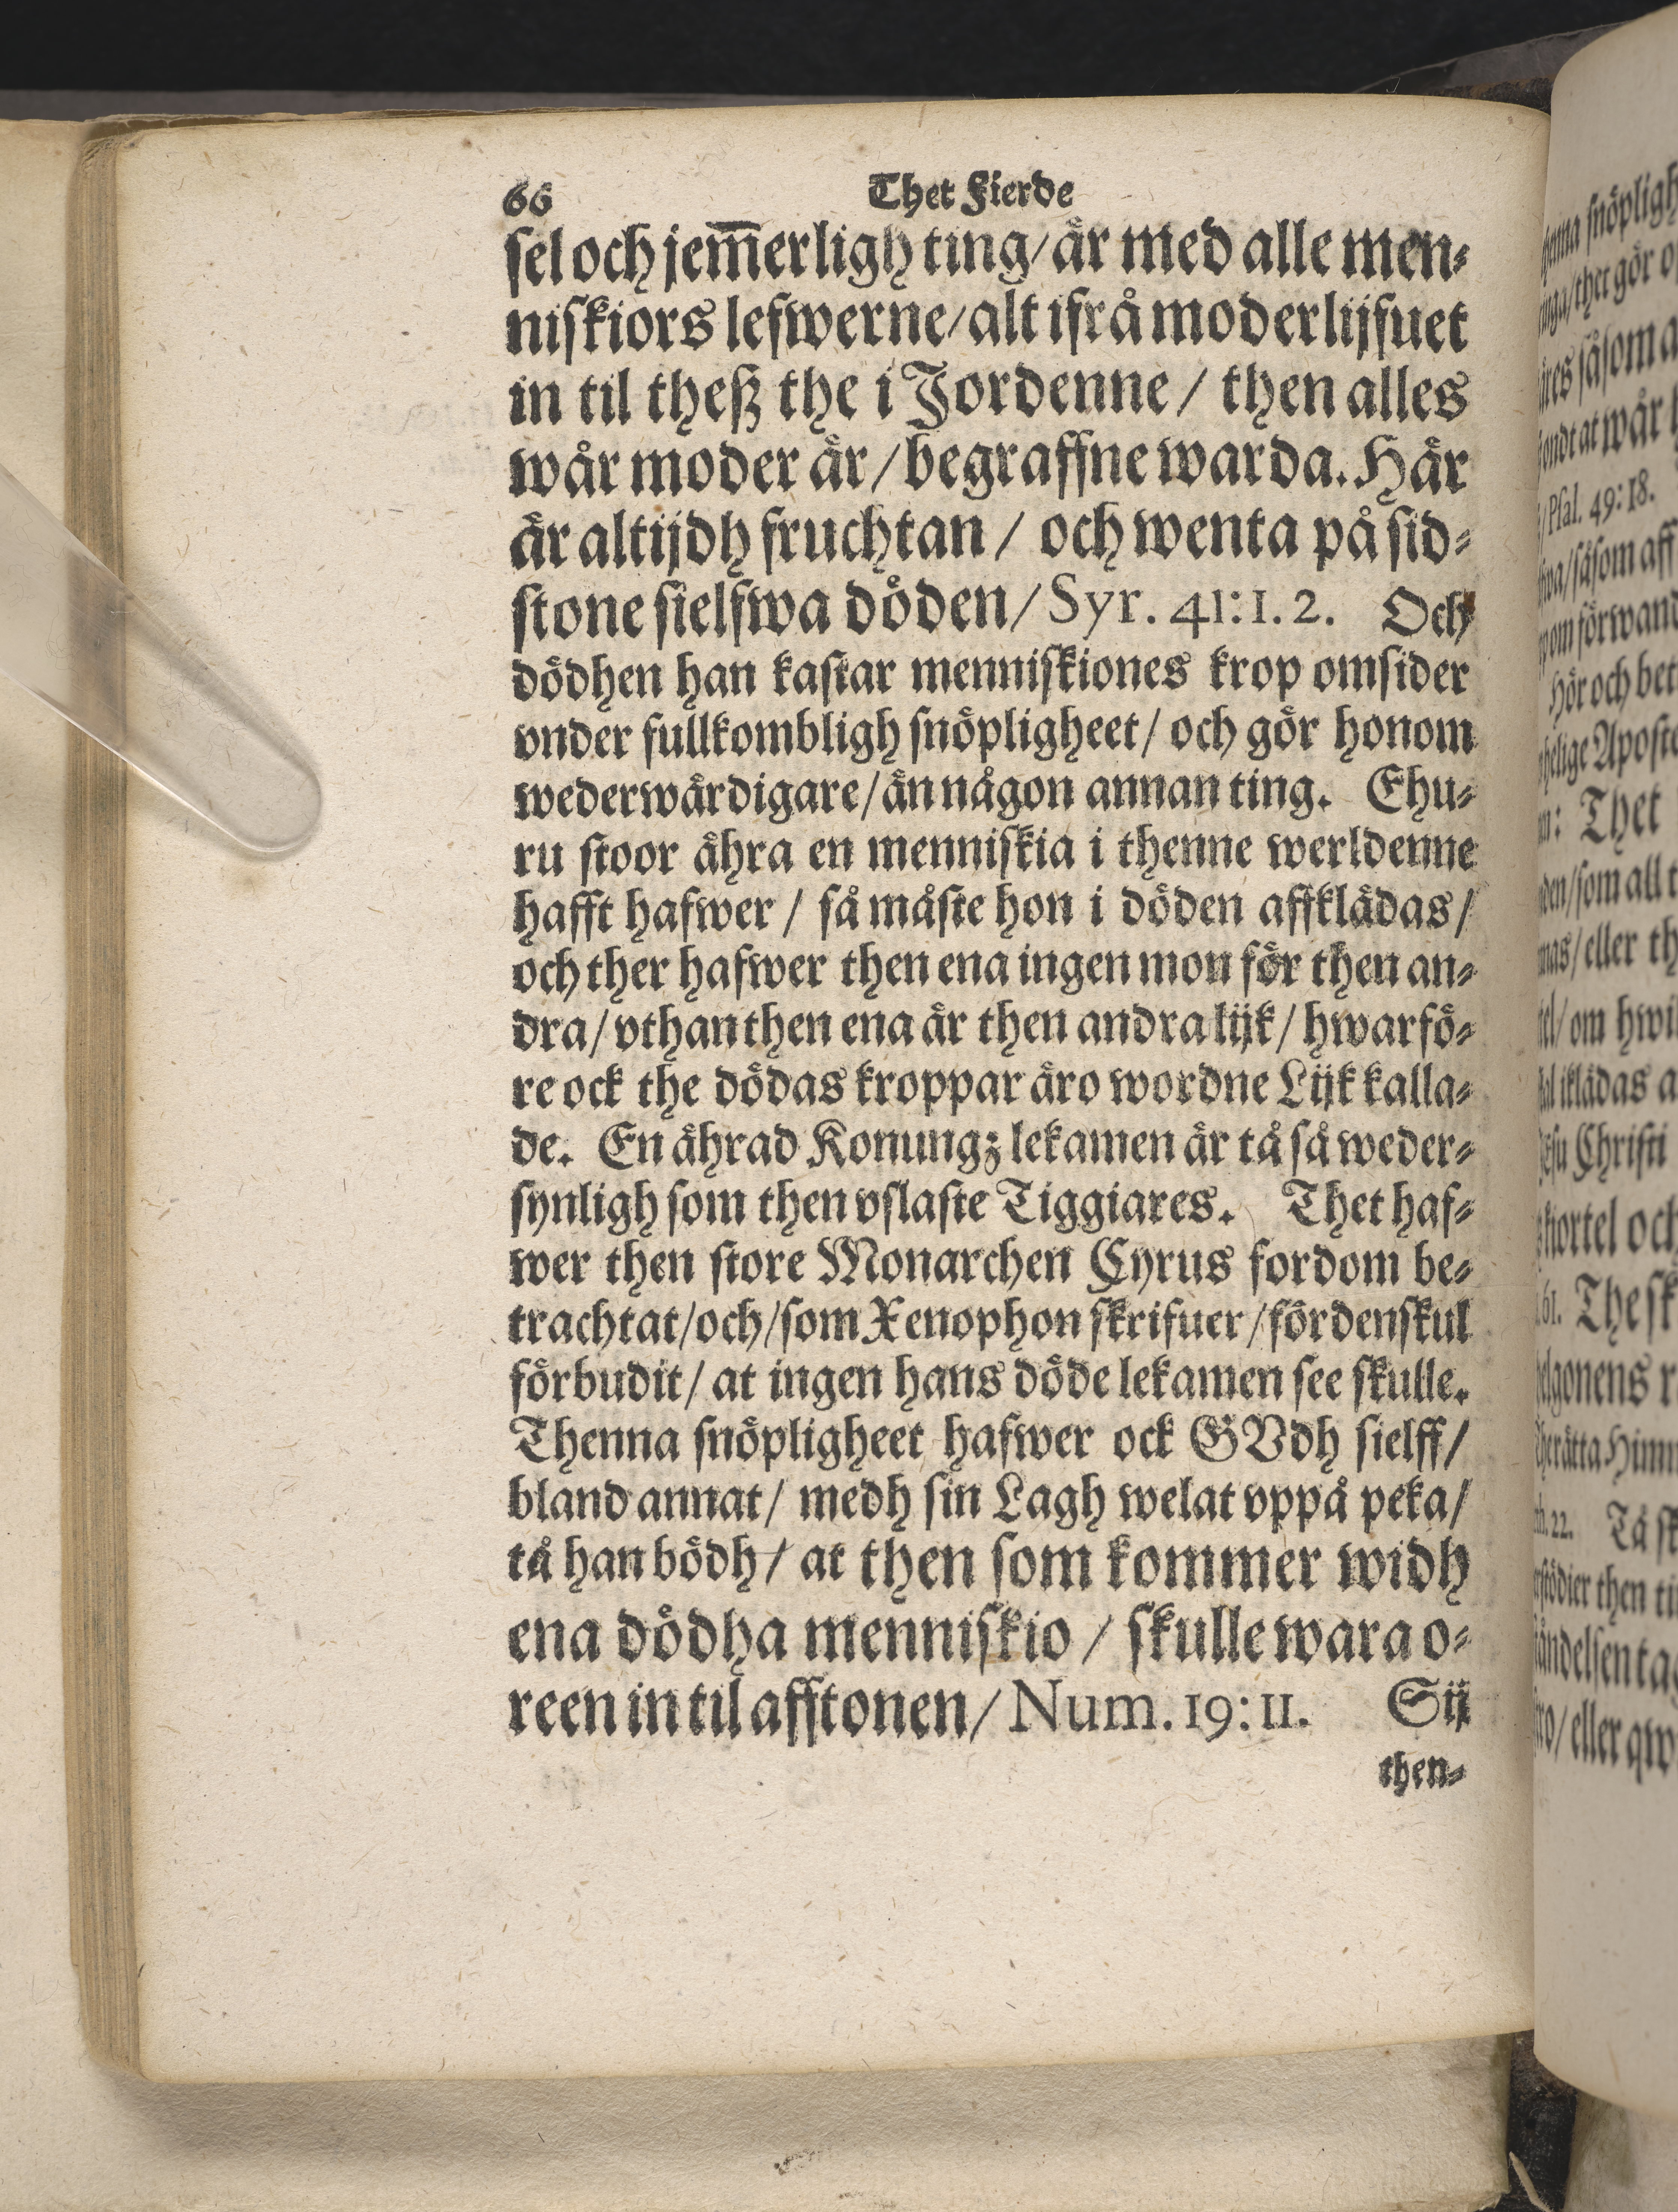 66 Thet Fierde
sel och jem̅erligh ting/ är med alle men-
niskiors lefwerne/ alt ifrå moderlijfuet
in til theß the i Jordenne / then alles
wår moder är / begraffne warda. Här
är altijdh fruchtan / och wenta på sid-
stone sielfwa döden/ Syr. 41:1. 2. Och
dödhen han kastar menniskiones krop omsider
vnder fullkombligh snöpligheet/ och gör honom
wederwärdigare/ än någon annan ting. Ehu-
ru stoor ähra en menniskia i thenne werldenne
hafft hafwer / så måste hon i döden affklädas/
och ther hafwer then ena ingen mon för then an-
dra/ vthan then ena är then andra lijk/ hwarfö-
re ock the dödas kroppar äro wordne Lijk kalla-
de. En ährad Konungz lekamen är tå så weder-
synligh som then vslaste Tiggiares. Thet haf-
wer then store Monarchen Cyrus fordom be-
trachtat/ och/ som Xenophon skrifuer / fördenskul
förbudit/ at ingen hans döde lekamen see skulle.
Thenna snöpligheet hafwer ock GVdh sielff/
bland annat/ medh sin Lagh welat vppå peka/
tå han bödh/ at then som kommer widh
ena dödha menniskio / skulle wara o-
reen in til afftonen/ Num. 19:11. Sij
then-